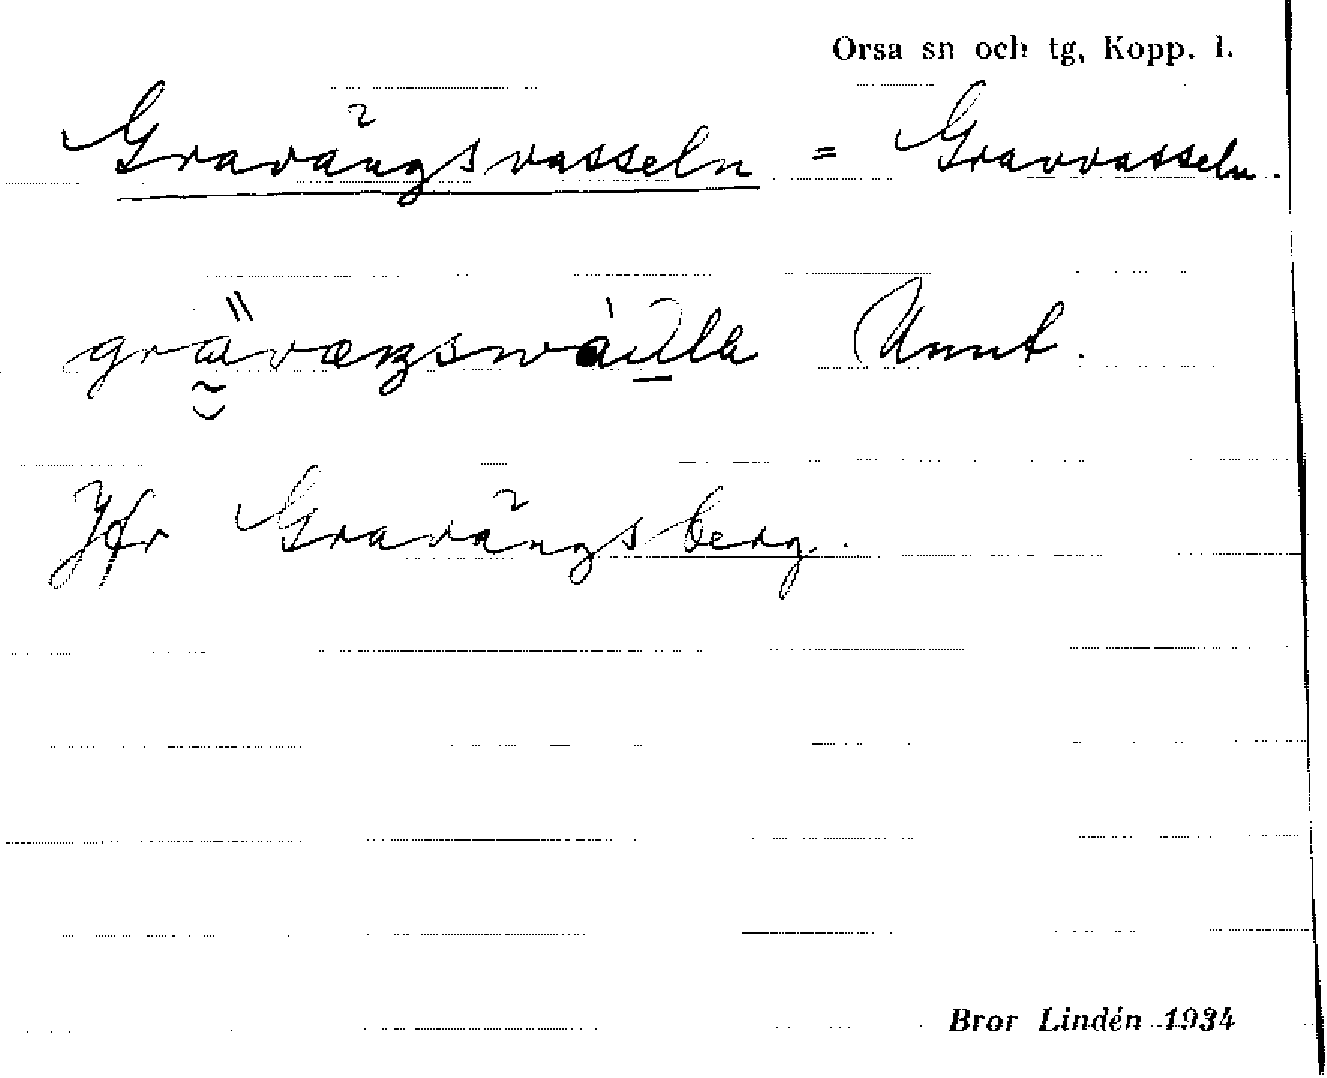 Orsa sn och tg, Kopp. l.
Gravängsvasseln = Gravvasseln.
Jfr Gravängsberg.
Bror Lindén 1934